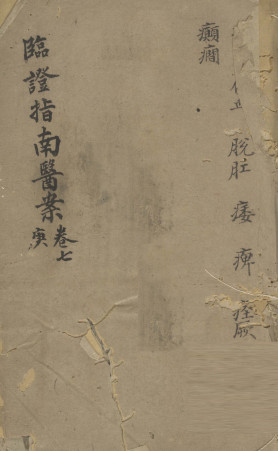 脫肛 痿 痺 痙厥
癲癇
臨證指南醫案
卷七
庚